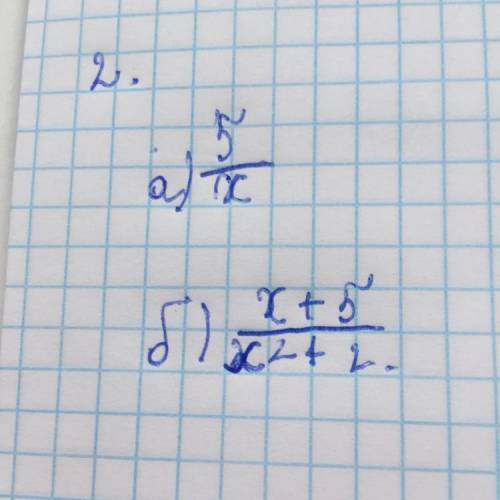 2.
а) 5/x
б) x + 5 / x2 + 2.